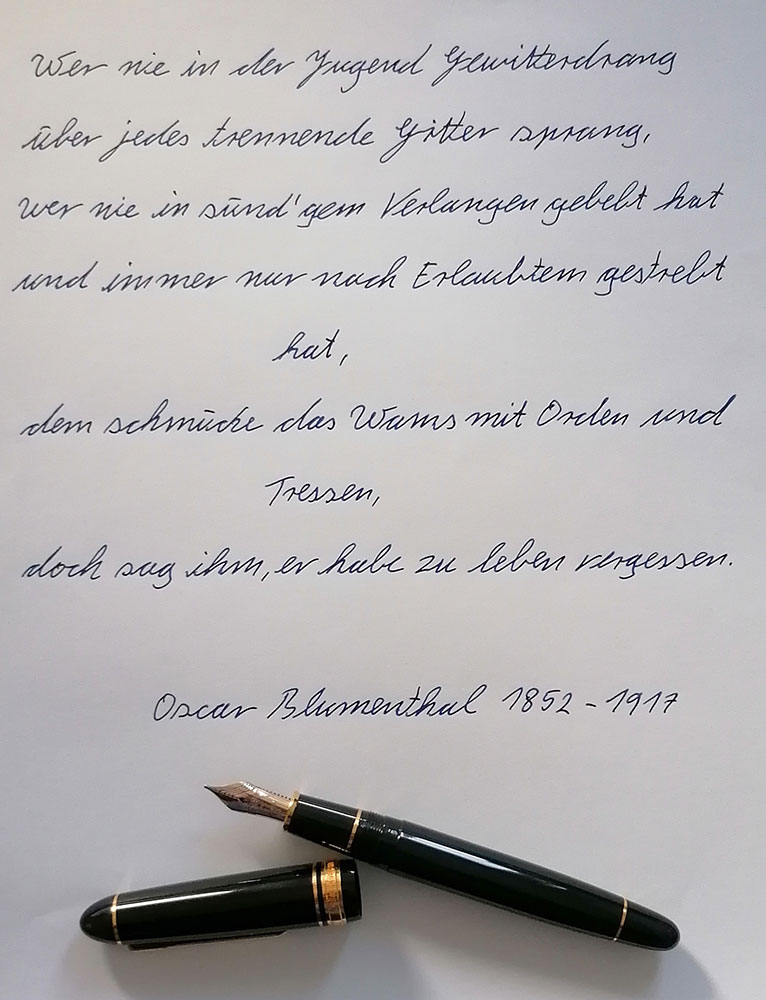 Wer nie in der Jugend Gewitterdrang
über jedes trennende Gitter sprang,
wer nie in sünd'gem Verlangen gebebt hat
und immer nur nach Erlaubtem gestrebt
hat,
dem schmücke das Wams mit Orden und
Tressen,
doch sag ihm, er habe zu leben vergessen.
Oscar Blumenthal 1852 - 1917